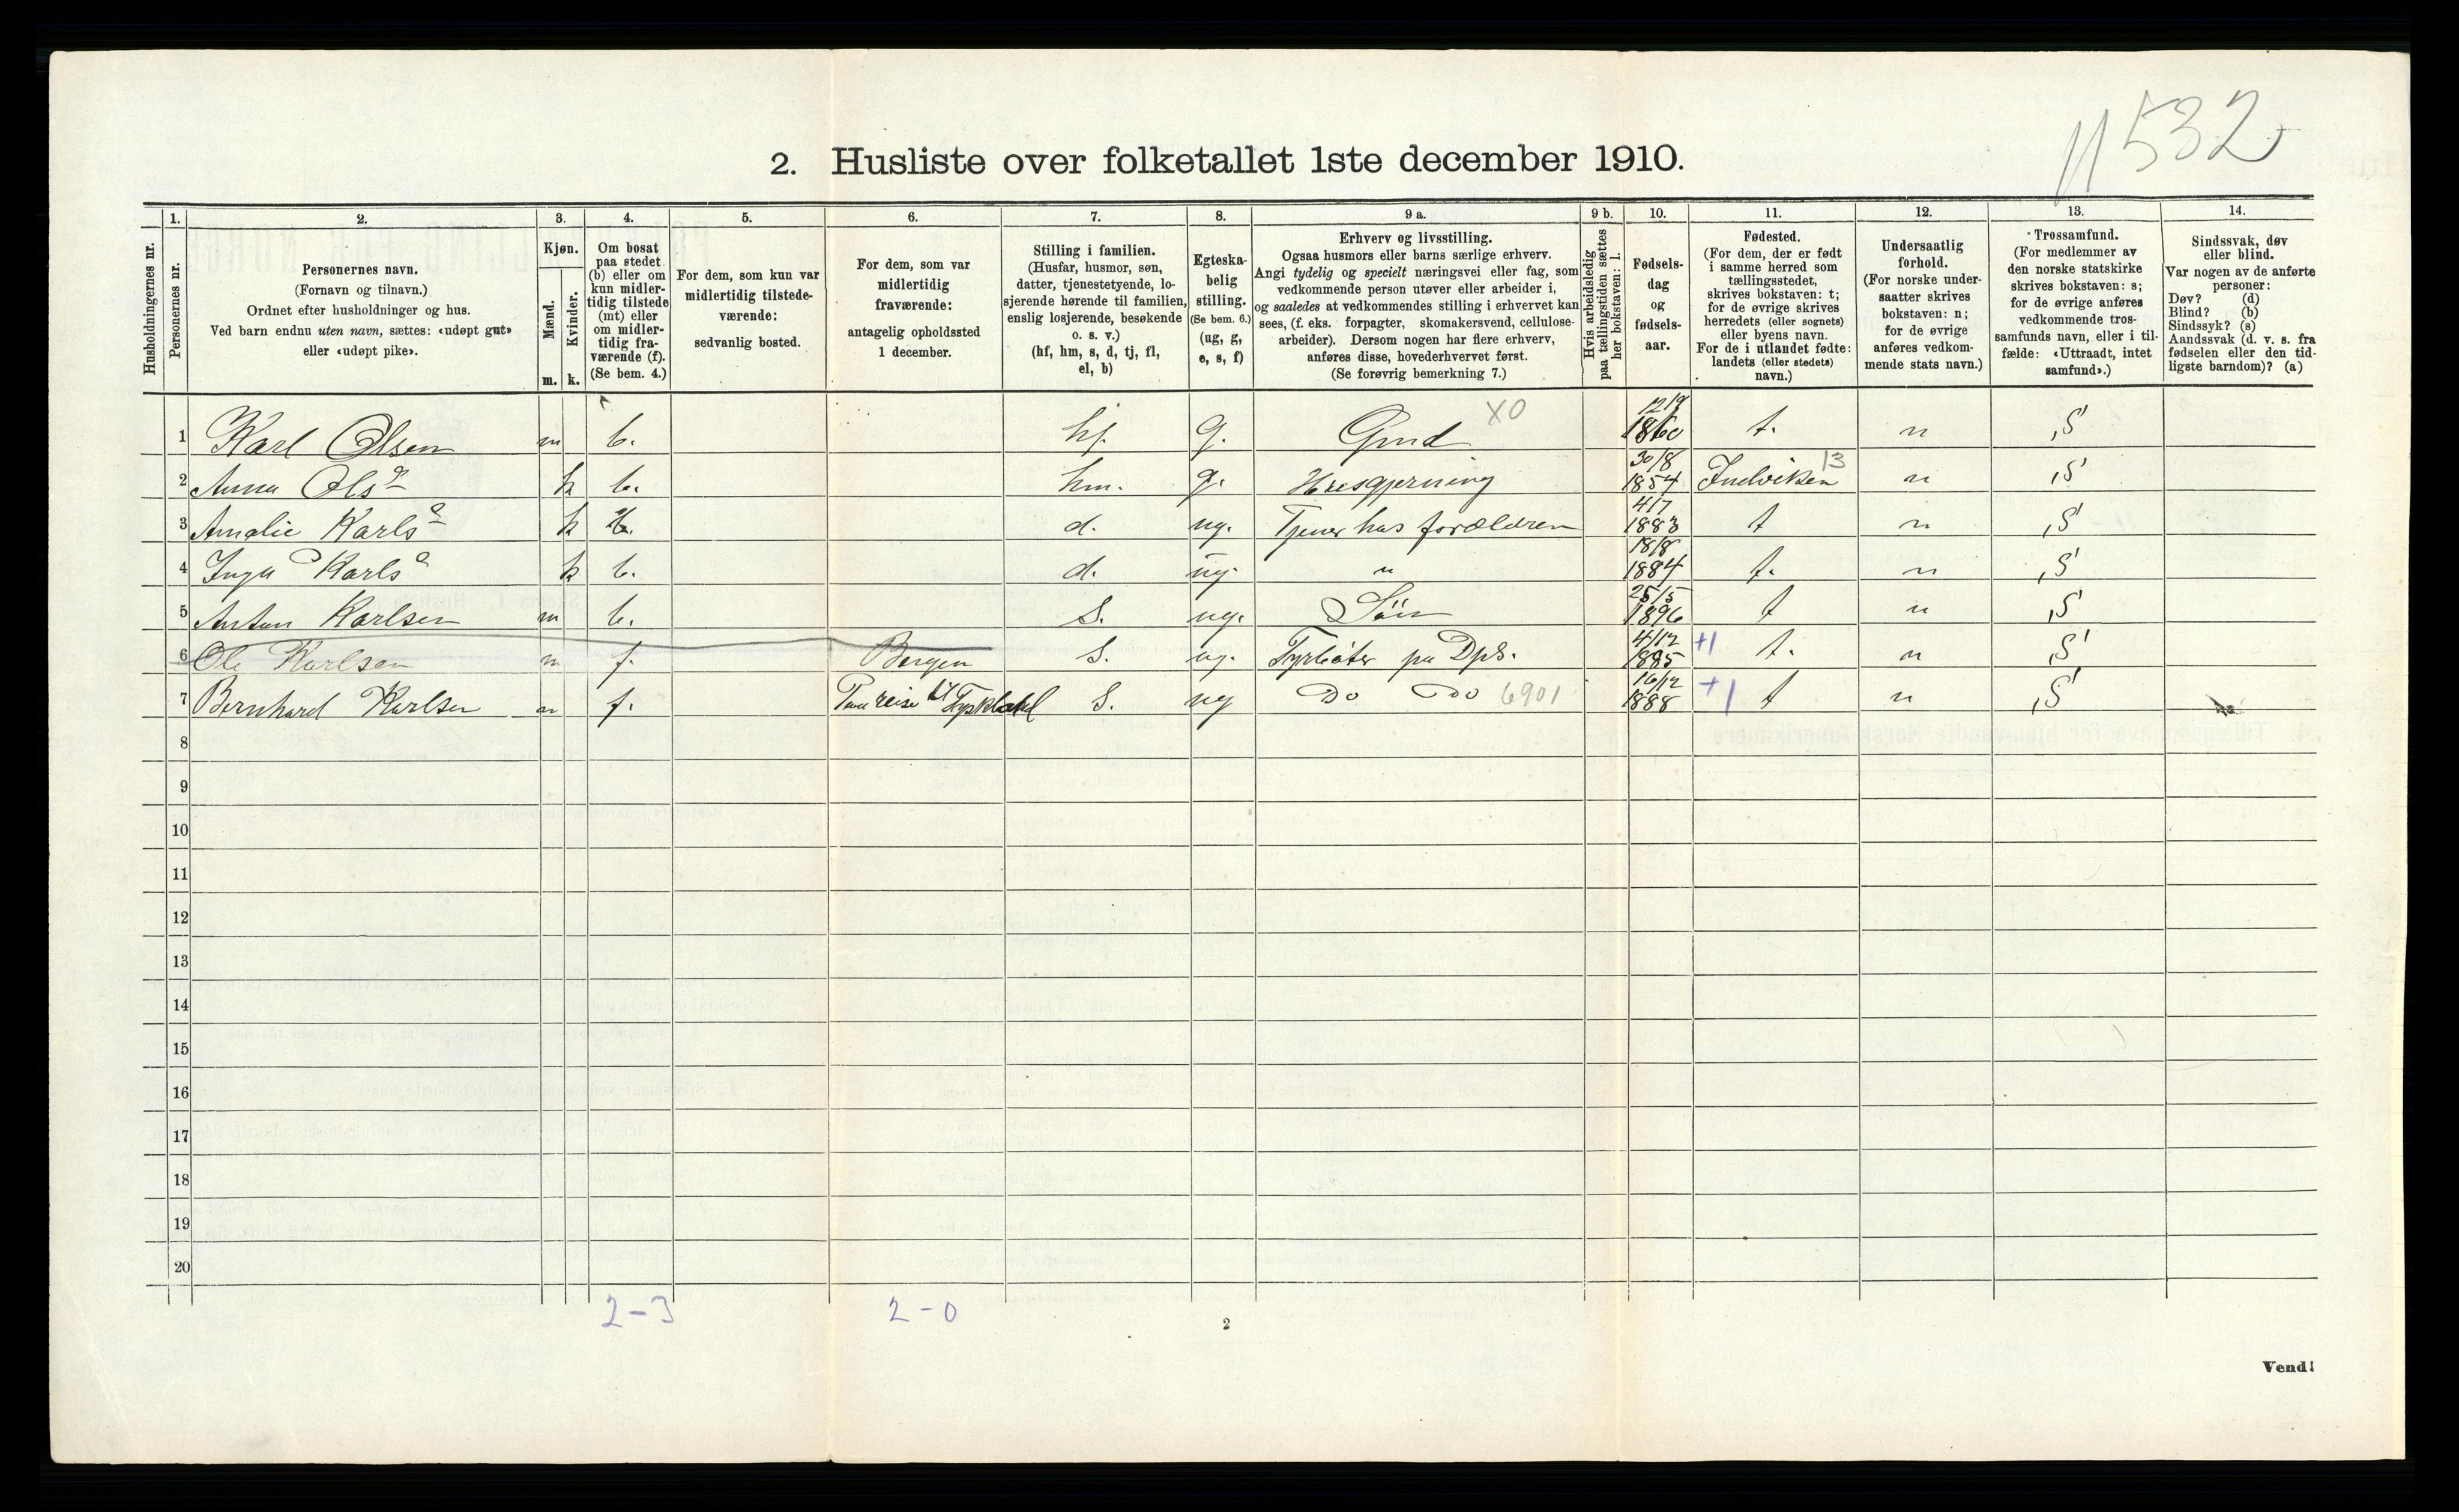 11532
2. Husliste over folketallet 1ste december 1910.
Husholdningernes nr.
1. Personernes nr.
2. Personernes navn.
(Fornavn og tilnavn.)
Ordnet efter husholdninger og hus.
Ved barn endnu uten navn, sættes: «udøpt gut»
eller «udøpt pike».
3. Kjøn.
Mænd. Kvinder.
m. k.
4. Om bosat
paa stedet
(b) eller om
kun midler-
tidig tilstede
(mt) eller
om midler-
tidig fra-
værende (f).
(Se bem. 4.)
5. For dem, som kun var
midlertidig tilstede-
værende:
sedvanlig bosted.
6. For dem, som var
midlertidig
fraværende:
antagelig opholdssted
1 december.
7. Stilling i familien.
(Husfar, husmor, søn,
datter, tjenestetyende, lo-
sjerende hørende til familien,
enslig losjerende, besøkende
o. s. v.)
(hf, hm, s, d, tj, fl,
el, b)
8. Egteska-
belig
stilling.
(Se bem. 6.)
(ug, g,
e, s, f)
9 a. Erhverv og livsstilling.
Ogsaa husmors eller barns særlige erhverv.
Angi tydelig og specielt næringsvei eller fag, som
vedkommende person utøver eller arbeider i,
og saaledes at vedkommendes stilling i erhvervet kan
sees, (f. eks. forpagter, skomakersvend, cellulose-
arbeider). Dersom nogen har flere erhverv,
anføres disse, hovederhvervet først.
(Se forøvrig bemerkning 7.)
9 b. Hvis arbeidsledig
paa tællingstiden sættes
her bokstaven: l.
10. Fødsels-
dag
og
fødsels-
aar.
11. Fødested.
(For dem, der er født
i samme herred som
tællingsstedet,
skrives bokstaven: t;
for de øvrige skrives
herredets (eller sognets)
eller byens navn.
For de i utlandet fødte:
landets (eller stedets)
navn.)
12. Undersaatlig
forhold.
(For norske under-
saatter skrives
bokstaven: n;
for de øvrige
anføres vedkom-
mende stats navn.)
13. Trossamfund.
(For medlemmer av
den norske statskirke
skrives bokstaven: s;
for de øvrige anføres
vedkommende tros-
samfunds navn, eller i til-
fælde: «Uttraadt, intet
samfund».)
14. Sindssvak, døv
eller blind.
Var nogen av de anførte
personer:
Døv? (d)
Blind? (b)
Sindssyk? (s)
Aandssvak (d. v. s. fra
fødselen eller den tid-
ligste barndom)? (a)
1 Karl Olsen m b. hf. g. Gmd X0 12/9 1860 t. n S
2 Anna Olsª k b. hm. g. Husgjerning 30/8 1854 Indviken 13 n S
3 Amalie Karlsª k b. d. ug. Tjener hos forældren 4/7 1883 t n S
4 Inga Karlsª k b. d. ug. " 18/8 1884 t. n S
5 Anton Karlsen m b. S. ug. Søn 25/5 1896 t n S
6 Ole Karlsen m f. Bergen S. ug. Fyrbøter pa Dps. 4/12 1885 +1 t. n S
7 Bernhard Karlsen m f. Paa reise til Tyskland S. ug Do Do 6901 16/12 1888 +1 t n S
8
9
10
11
12
13
14
15
16
17
18
19
20
2-3 2-0
2
Vend!